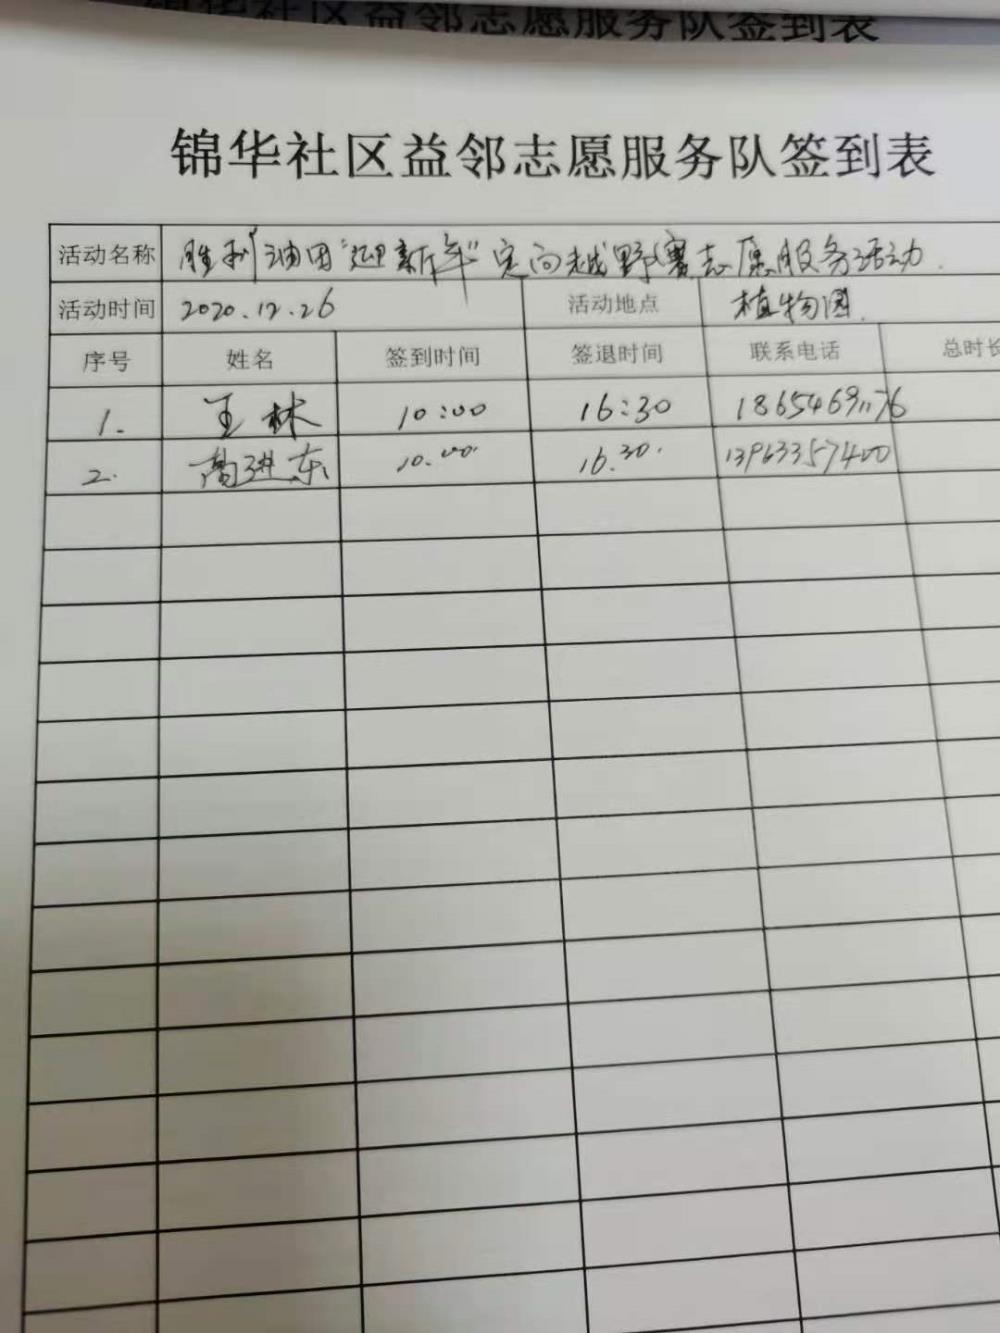 锦华社区益邻志愿服务队签到表
锦华社区益邻志愿服务队签到表
活动名称 胜利油田“迎新年”定向越野赛志愿服务活动.
活动时间 2020.12.26 活动地点 植物园.
序号 姓名 签到时间 签退时间 联系电话 总时长
1. 王林 10:00 16:30
2. 高进东 10.00. 16.30. 13963357400